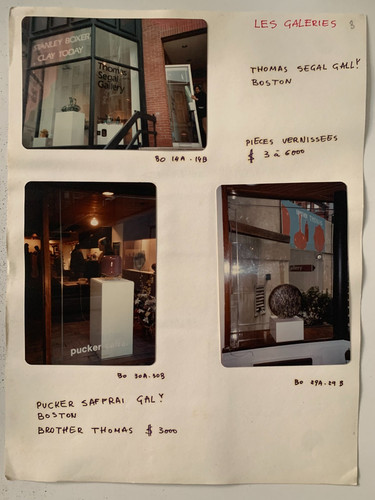 LES GALERIES 8
STANLEY BOXER,
CLAY TODAY
Thomas
Segal
Gallery
THOMAS SEGAL GALLY
BOSTON
PIECES VERNISSEES
$ 3 à 6000
BO 14A - 14B
pucker
BO 30A - 30B
BO 29A - 29B
PUCKER SAFFRAI GALY
BOSTON
BROTHER THOMAS $ 3000